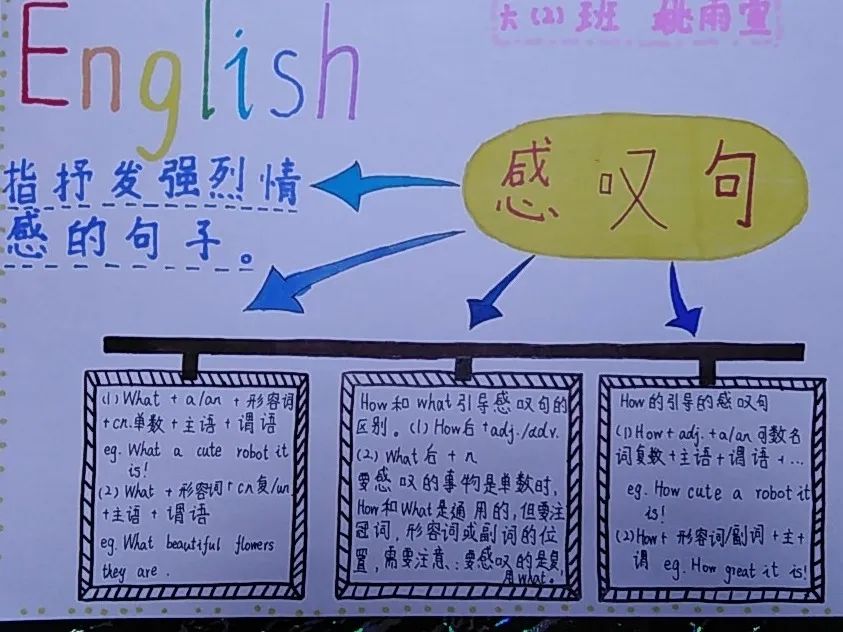 English
六(2)班 姚雨萱
感叹句
指抒发强烈情
感的句子。
(1) What + a/an + 形容词
+ cn.单数 + 主语 + 谓语
eg. What a cute robot it
is!
(2) What + 形容词 + cn复/un
+ 主语 + 谓语
eg. What beautiful flowers
they are.
How和what引导感叹句的
区别。(1) How后+adj./adv.
(2) What后 + n.
要感叹的事物是单数时,
How和What是通用的,但要注
冠词,形容词或副词的位
置,需要注意、:要感叹的是复,
用what。
How的引导的感叹句
(1) How + adj. + a/an 可数名
词复数 + 主语 + 谓语 + ...
eg. How cute a robot it
is!
(2) How + 形容词/副词 + 主+
谓 eg. How great it is!